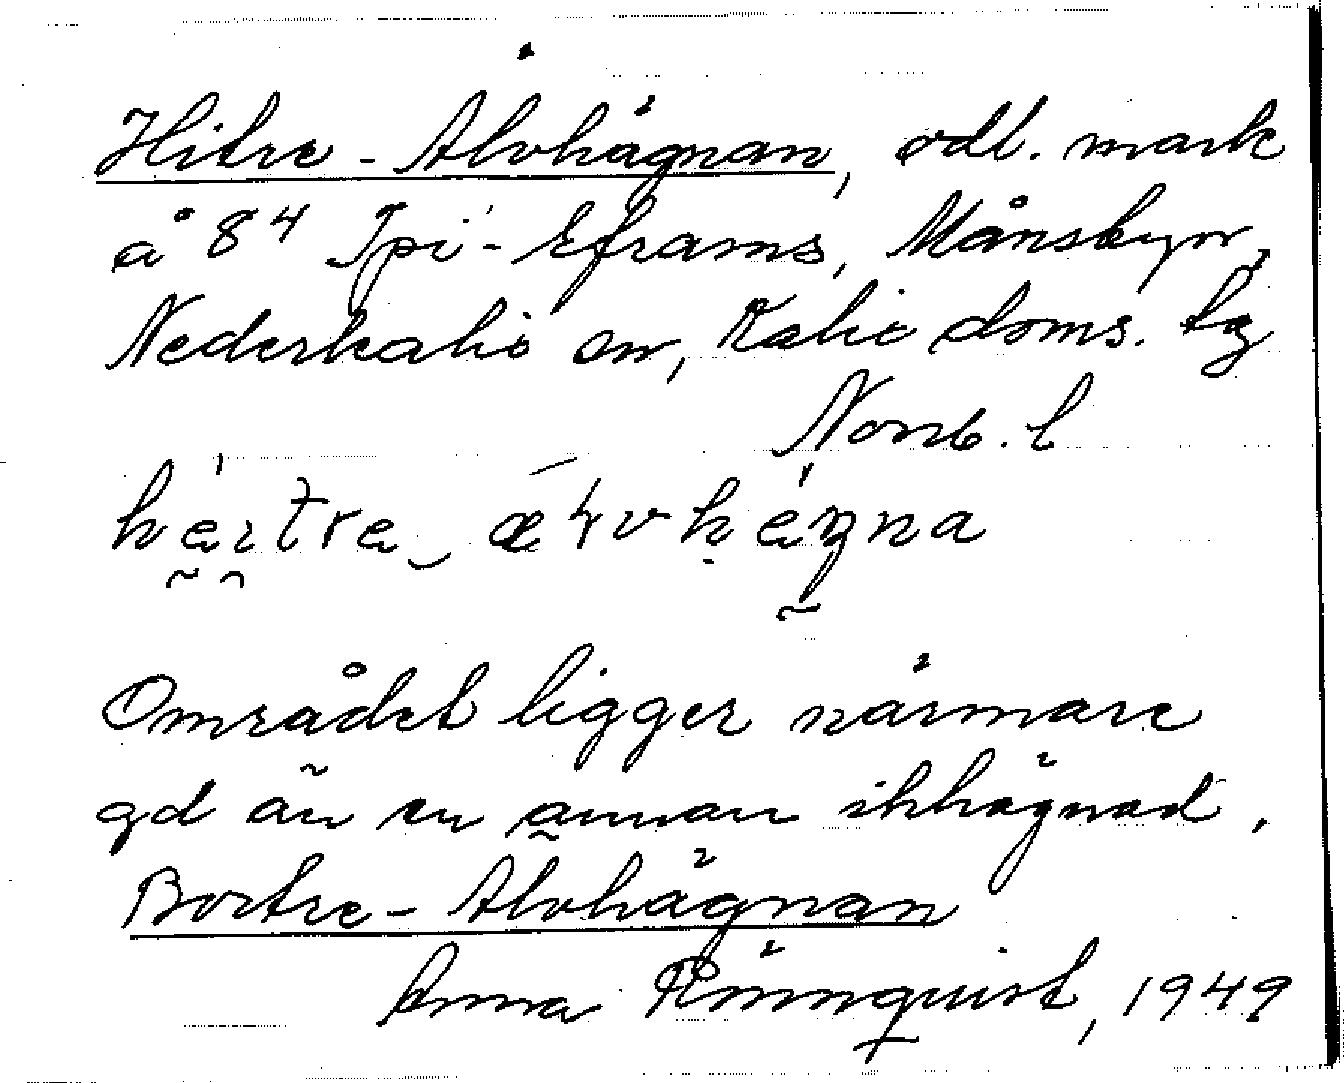 Hitre-Älvhägnan, odl. mark
å 8⁴ Ipi-Eframs, Månsbyn,
Nederkalix sn, Kalix doms. bg
Norrb. l
Området ligger närmare
gd än en annan ihhägnad,
Bortre-Älvhägnan
Anna Rönnquist, 1949